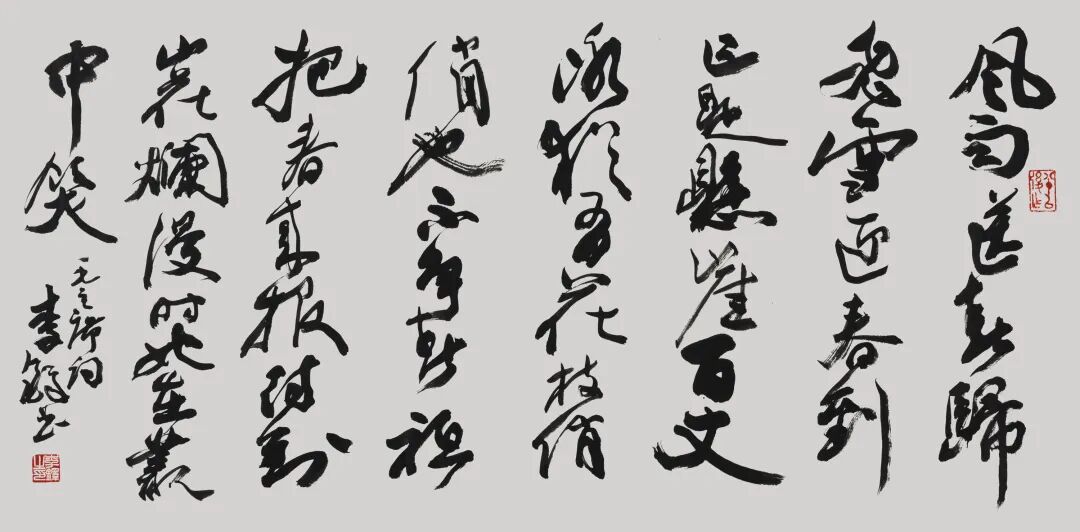 风雨送春歸
飛雪迎春到
已是懸崖百丈
冰猶有花枝俏
俏也不爭春祇
把春來报待到
山花爛漫时她在叢
中笑
毛主席词
李鋒书